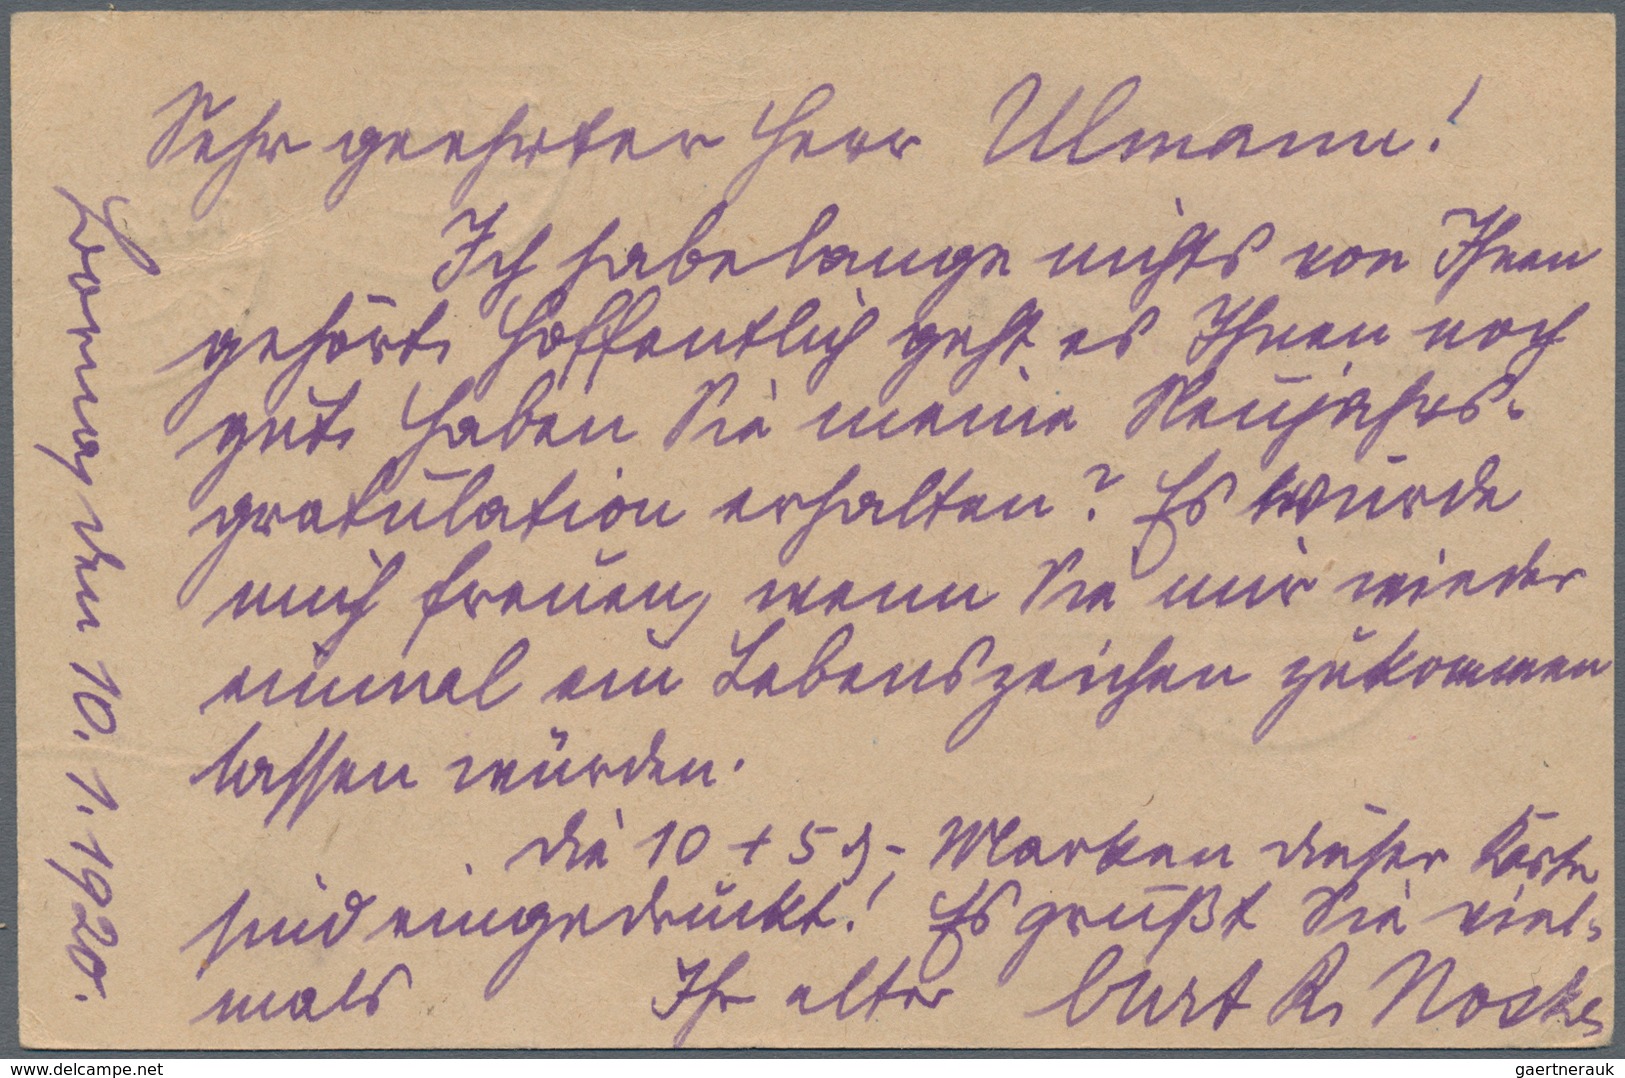 Sehr geehrter Herr Ulmann!
Ich habe lange nichts von Ihnen
gehört. Hoffentlich geht es Ihnen noch
gut. Haben Sie meine Neujahrs-
gratulation erhalten? Es würde
mich freuen, wenn Sie mir wieder
einmal ein Lebenszeichen zukommen
lassen würden.
Die 10 + 5 ₰, Marken dieser Karte
sind eingedruckt! Es grüßt Sie viel-
mals Ihr alter Curt R.
den 10. 1. 1920.
www.delcampe.net
gaertnerauk